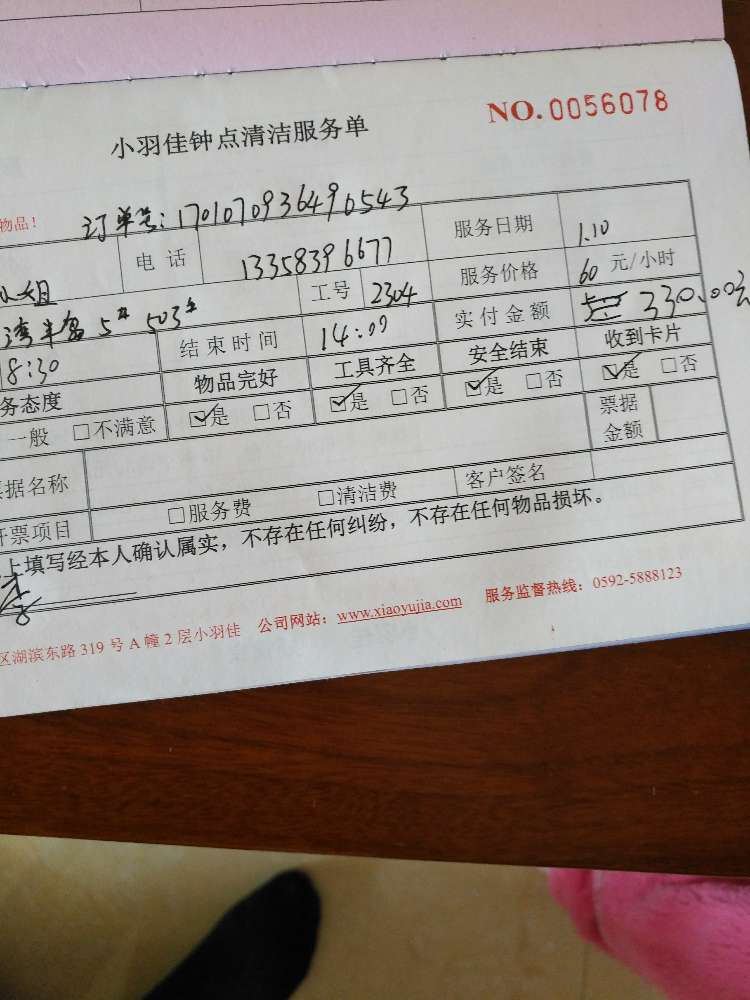 NO. 0056078
小羽佳钟点清洁服务单
物品！
订单号：1701070936496543
小姐 电话 13358396677 服务日期 1.10
湾半岛 5# 503# 工号 2304 服务价格 60 元/小时
8:30 结束时间 14:00 实付金额 330.00元
务态度 物品完好 工具齐全 安全结束 收到卡片
一般 □不满意 ☑是 □否 ☑是 □否 ☑是 □否 ☑是 □否
据名称 票据金额
开票项目 □服务费 □清洁费 客户签名
上填写经本人确认属实，不存在任何纠纷，不存在任何物品损坏。
区湖滨东路 319 号 A 幢 2 层小羽佳 公司网站：www.xiaoyujia.com 服务监督热线：0592-5888123